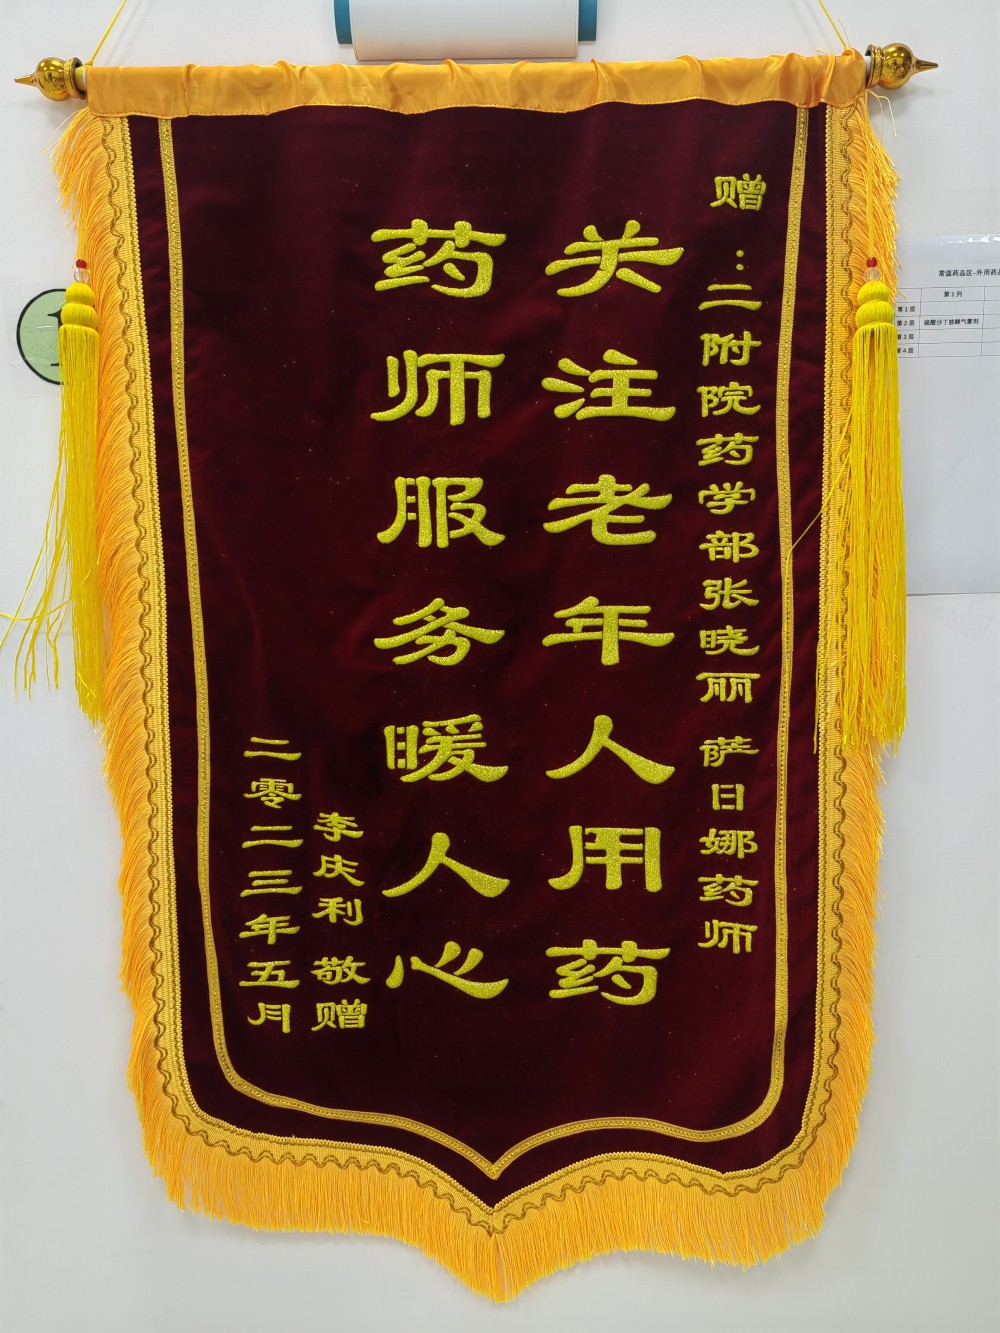 赠：二附院药学部张晓丽 萨日娜药师
关注老年人用药
药师服务暖人心
李庆利 敬赠
二零二三年五月
常温药品区-外用药品
第1列
第1层
第2层 硫酸沙丁胺醇气雾剂
第3层
第4层
1